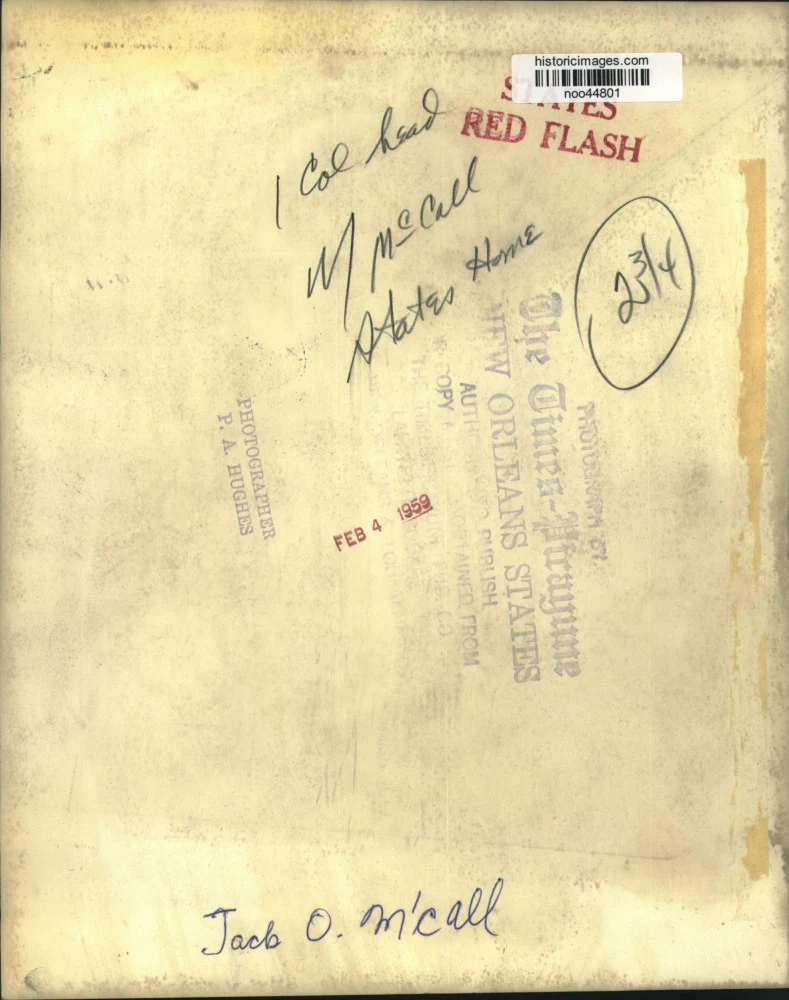 historicimages.com
noo44801
STATES
RED FLASH
1 Col head
W/ McCall
States Home
2 3/4
PHOTOGRAPH BY
The Times-Picayune
NEW ORLEANS STATES
PUBLISH
COPY
OBTAINED FROM
FEB 4 1959
PHOTOGRAPHER
P. A. HUGHES
Jack O. M'call